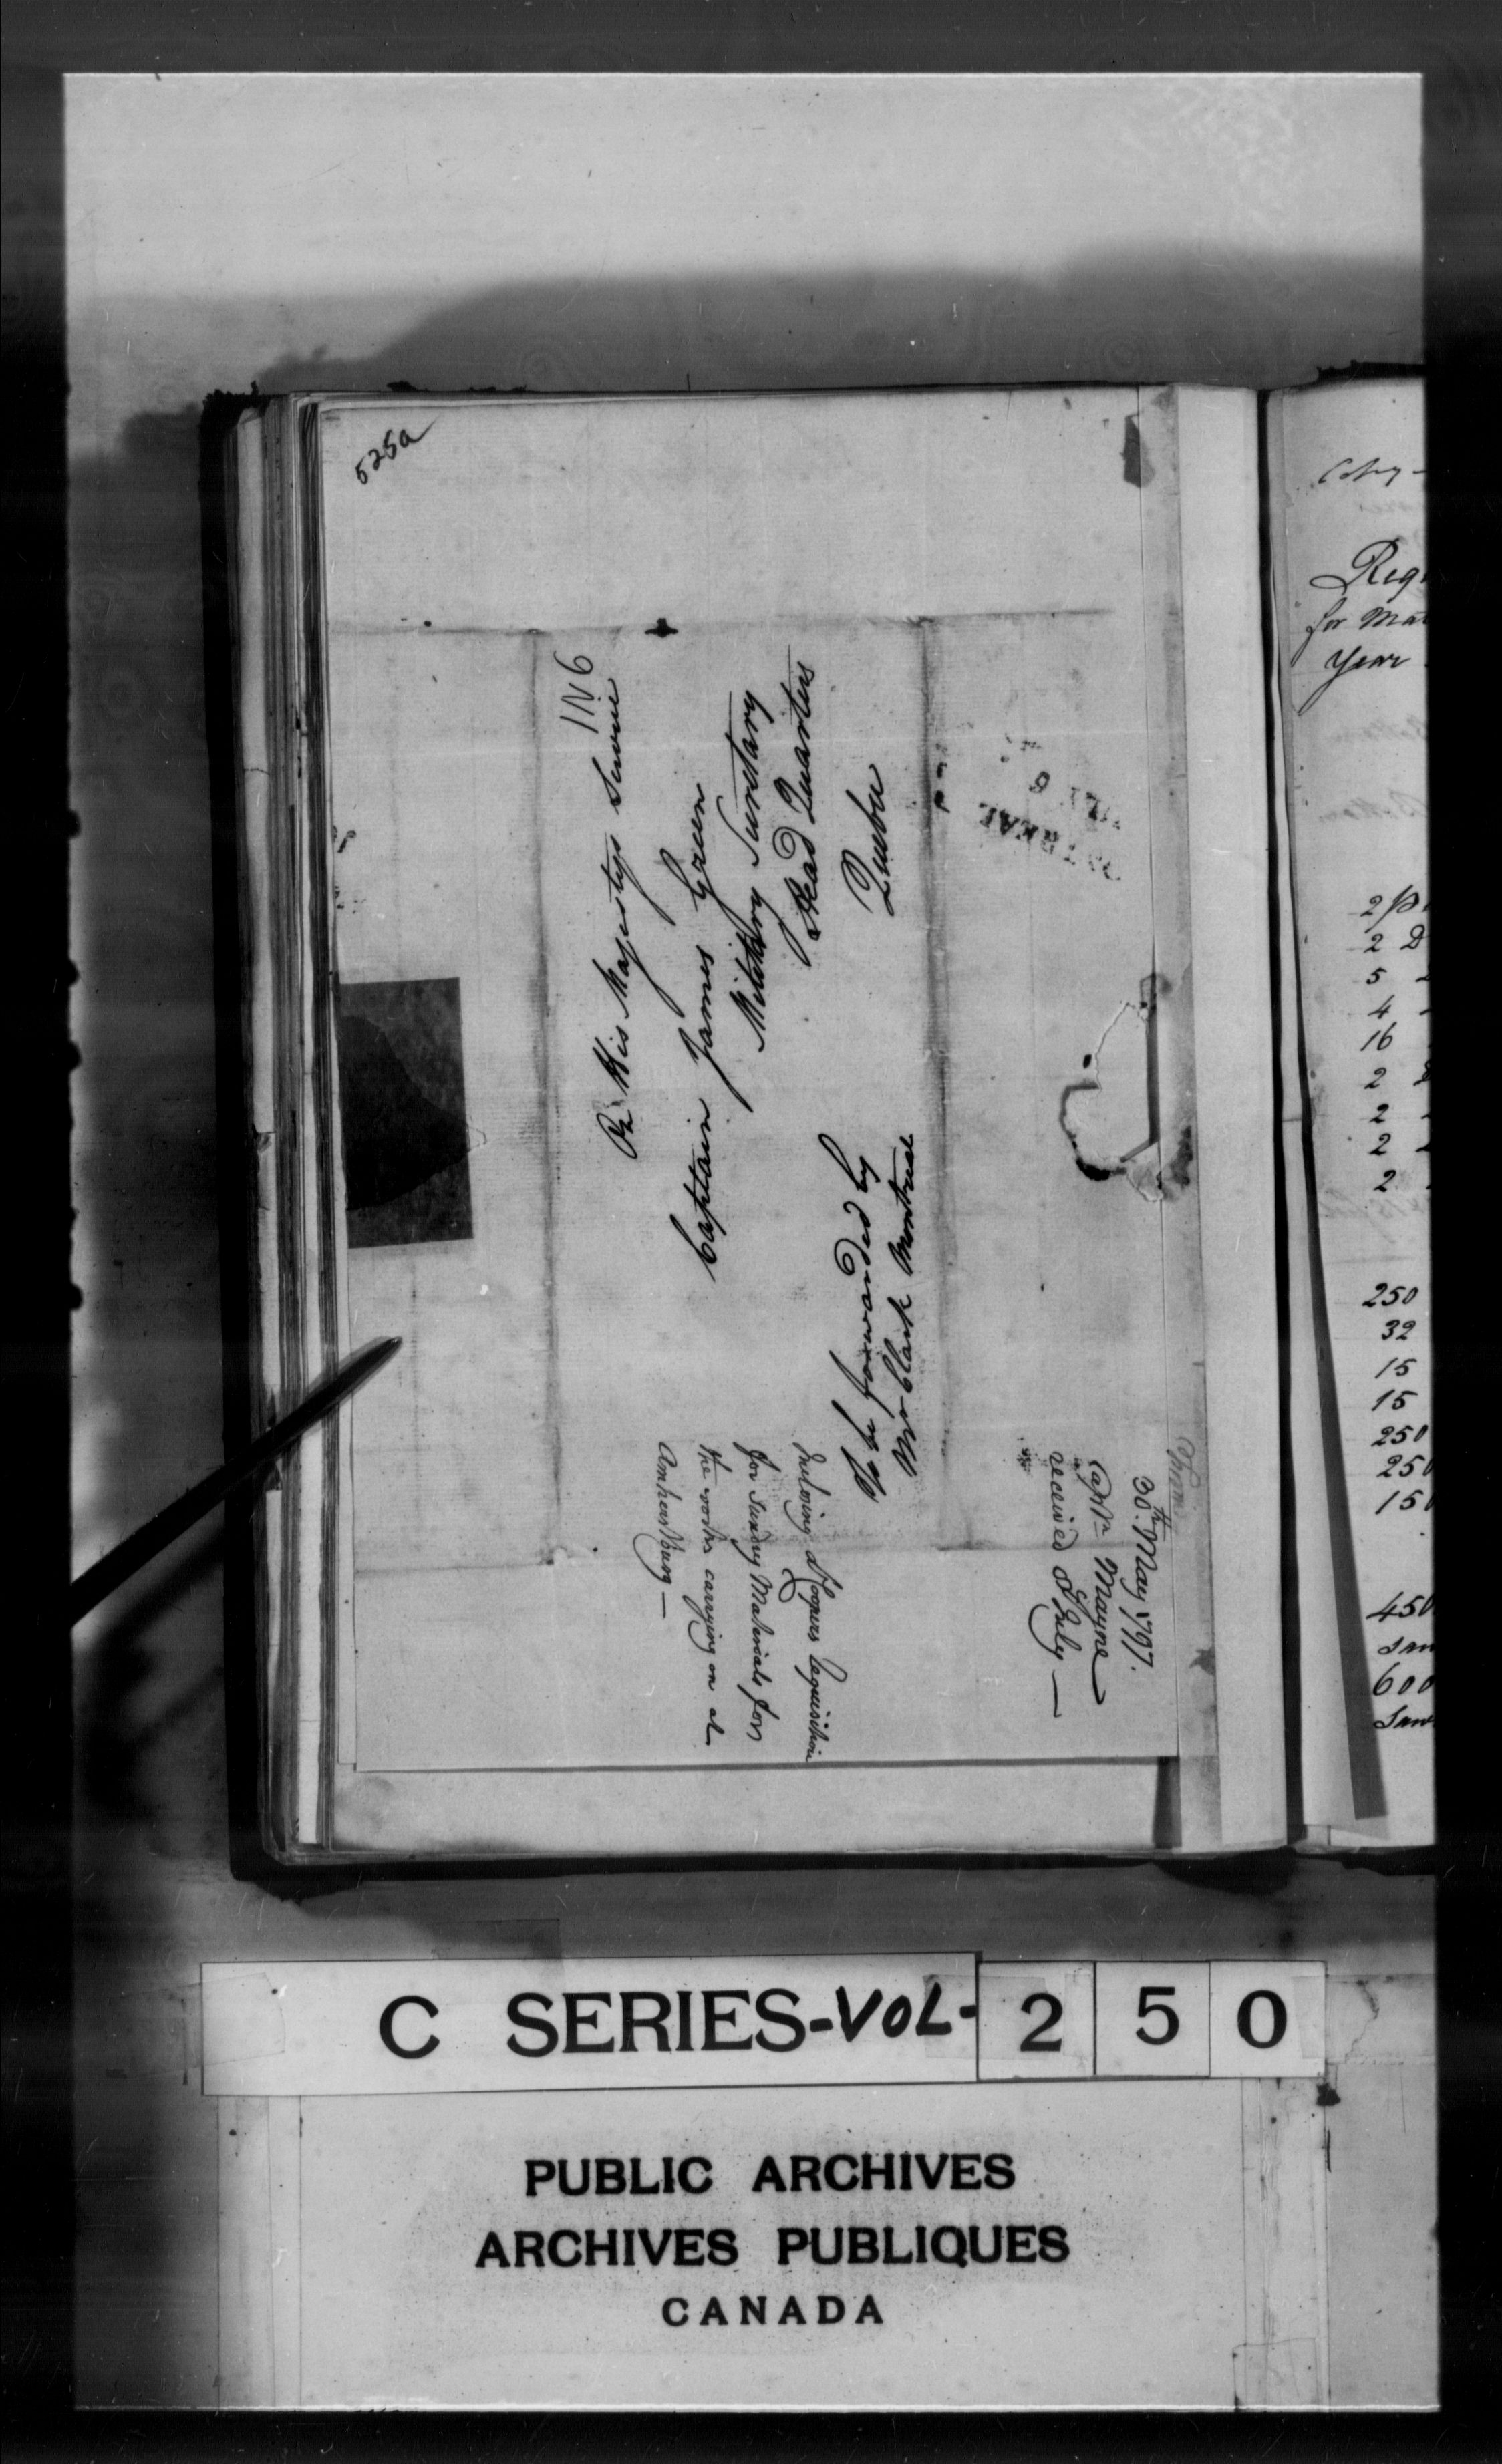 525a
On His Majestys Service
1N6
Captain James Green
Military Secretary
Head Quarters
Quebec
To be forwarded by
Mr Clark Montreal
30th May 1797.
Captn Mayne
received 8 July —
Inclosing Coopers Requisition
for Sundry Materials for
the works carrying on at
Amherstburg —
Copy -
for
Year
2
2 D
5
4
16
2
2
2
2
250
32
15
15
250
C SERIES-VOL-250
PUBLIC ARCHIVES
ARCHIVES PUBLIQUES
CANADA